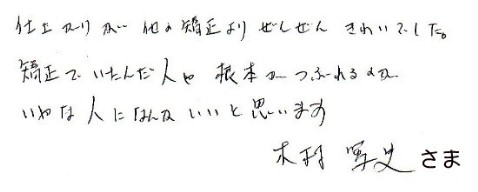 仕上がりが 他の矯正より ぜんぜん きれいでした。
矯正で いたんだ人や 根本が つぶれるのが
いやな人に なんか いいと思います
木村 さま